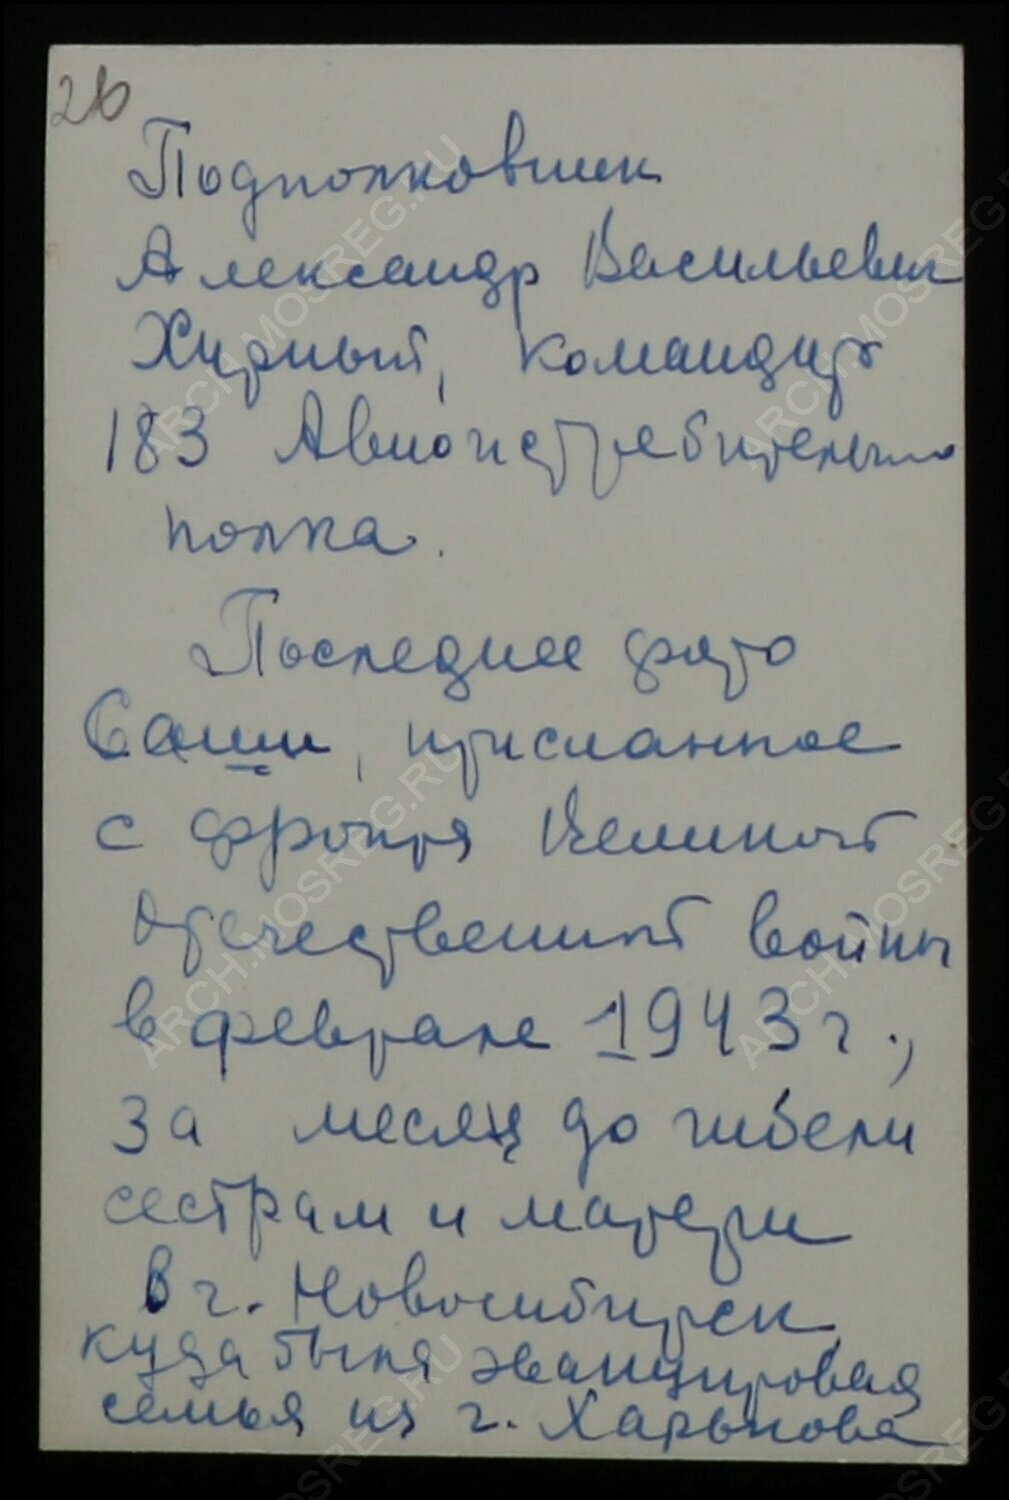 26
Подполковник
Александр Васильевич
Хирный, командир
183 Авиоистребительно
полка.
Последнее фото
Саши, присланное
с фронта Великой
Отечественной войны
в феврале 1943 г.,
за месяц до гибели
сестрам и матери
в г. Новосибирск,
куда была эвакуирована
семья из г. Харькова
ARCH.MOSREG.RU